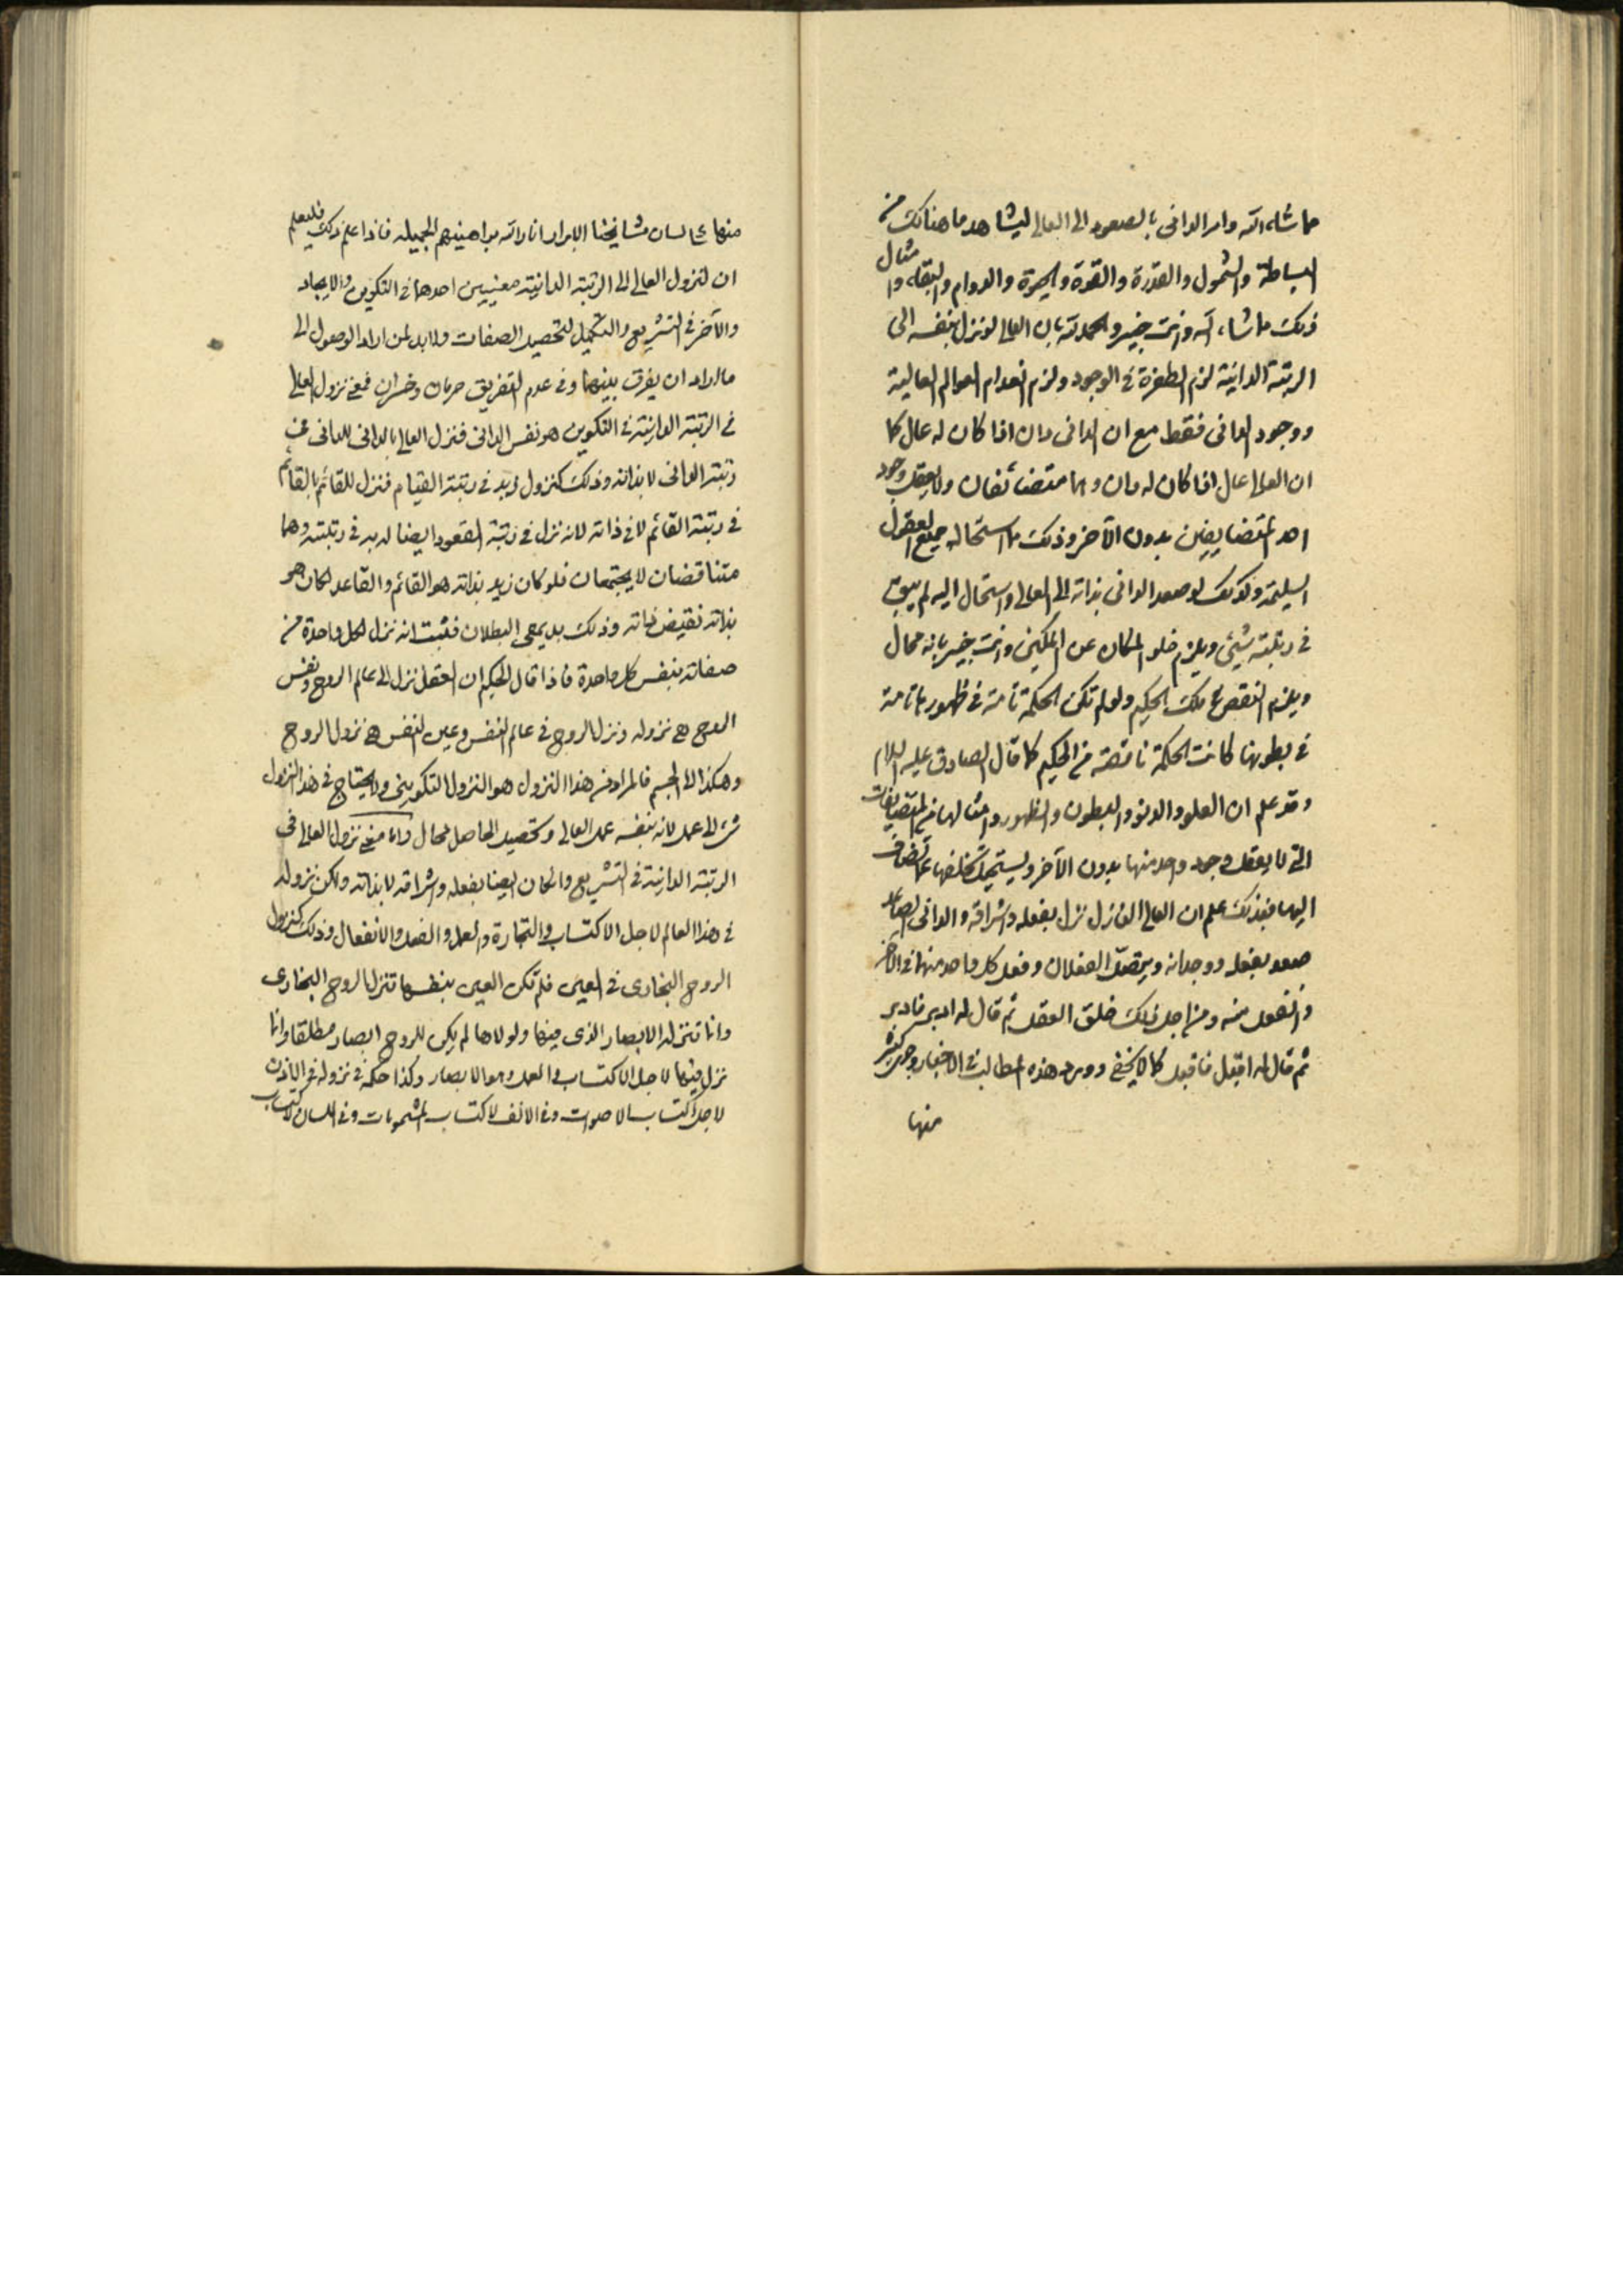 مما شاء الله وامر الدانى بالصعود الى العالى ليشاهد ما هنالك من
البساطة والشمول والقدرة والقوة والحيوة والدوام والبقاء وامثال
ذلك ما شاء الله وانت خبير والحمد لله بان العالى لو نزل بنفسه الى
الرتبة الدانية لزم الطفرة فى الوجود ولزم انعدام العوالم العالية
ووجود الدانى فقط مع ان الدانى دان اذا كان له عال كما
ان العالى عال اذا كان له دان وهما متضائفان ولا يعقل وجود
احد المتضايفين بدون الآخر وذلك ما استحاله جميع العقول
السليمة وكذلك لو صعد الدانى بذاته الى العالى واستحال اليه لم يبق
فى رتبته شيئ ويلزم خلو المكان عن المكين وانت خبير بانه محال
ويلزم النقص على ملك الحكيم ولو لم تكن الحكمة تامة فى ظهورها تامة
فى بطونها كانت الحكمة ناقصة من الحكيم كما قال الصادق عليه السلام
وقد علم ان العلو والدنو والبطون والظهور وامثالها من المتضايفات
التى لا يعقل وجود واحد منها بدون الآخر ويستحيل تخلفها عما تضاف
اليها فبذلك علم ان العالى النازل نزل بفعله واشراقه والدانى الصاعد
صعد بفعله ووجدانه ويتصل الفعلان وفعل كل واحد منهما فى الآخر
وانفعل منه ومن اجل ذلك خلق العقل ثم قال له ادبر فادبر
ثم قال له اقبل فاقبل كما لا يخفى وورد هذه المطالب فى الاخبار وجرى كثير
منها
منها على لسان مشايخنا الابرار انار الله براهينهم الجميلة فاذا علم ذلك فليعلم
ان لنزول العالى الى الرتبة الدانية معنيين احدهما فى التكوين والايجاد
والآخر فى التشريع والتكميل لتحصيل الصفات ولابد لمن اراد الوصول الى
ما اراد ان يفرق بينهما وفى عدم التفريق حرمان وخسران فمعنى نزول العالى
فى الرتبة الدانية فى التكوين هو نفس الدانى فنزل العالى بالدانى للدانى فى
رتبة الدانى لا بذاته وذلك كنزول زيد فى رتبة القيام فنزل للقائم بالقائم
فى رتبة القائم لا فى ذاته لانه نزل فى رتبة القعود ايضا له به فى رتبته وهما
متناقضان لا يجتمعان فلو كان زيد بذاته هو القائم والقاعد لكان هو
بذاته نقيض ذاته وذلك بديهى البطلان فثبت انه نزل لكل واحدة من
صفاته بنفس كل واحدة فاذا قال الحكيم ان العقل نزل الى عالم الروح ونفس
الروح هى نزوله ونزل الروح فى عالم النفس وعين النفس هى نزول الروح
وهكذا الى الجسم فالمراد من هذا النزول هو النزول التكوينى ولا يحتاج فى هذا النزول
شئ الى عمل لانه بنفسه عمل العالى وتحصيل الحاصل محال واما معنى نزول العالى فى
الرتبة الدانية فى التشريع وان كان ايضا بفعله واشراقه لا بذاته ولكن نزوله
فى هذا العالم لاجل الاكتساب والتجارة والعمل والفعل والانفعال وذلك كنزول
الروح البخارى فى العين فلم تكن العين بنفسها تنزل الروح البخارى
وانما تنزله الابصار الذى فيها ولولاها لم يكن للروح ابصار مطلقا وانما
نزل فيها لاجل الاكتساب والعمل وهو الابصار وكذا حكمه فى نزوله فى الاذن
لاجل اكتساب الاصوات وفى الانف لاكتساب المشمومات وفى اللسان لاكتساب